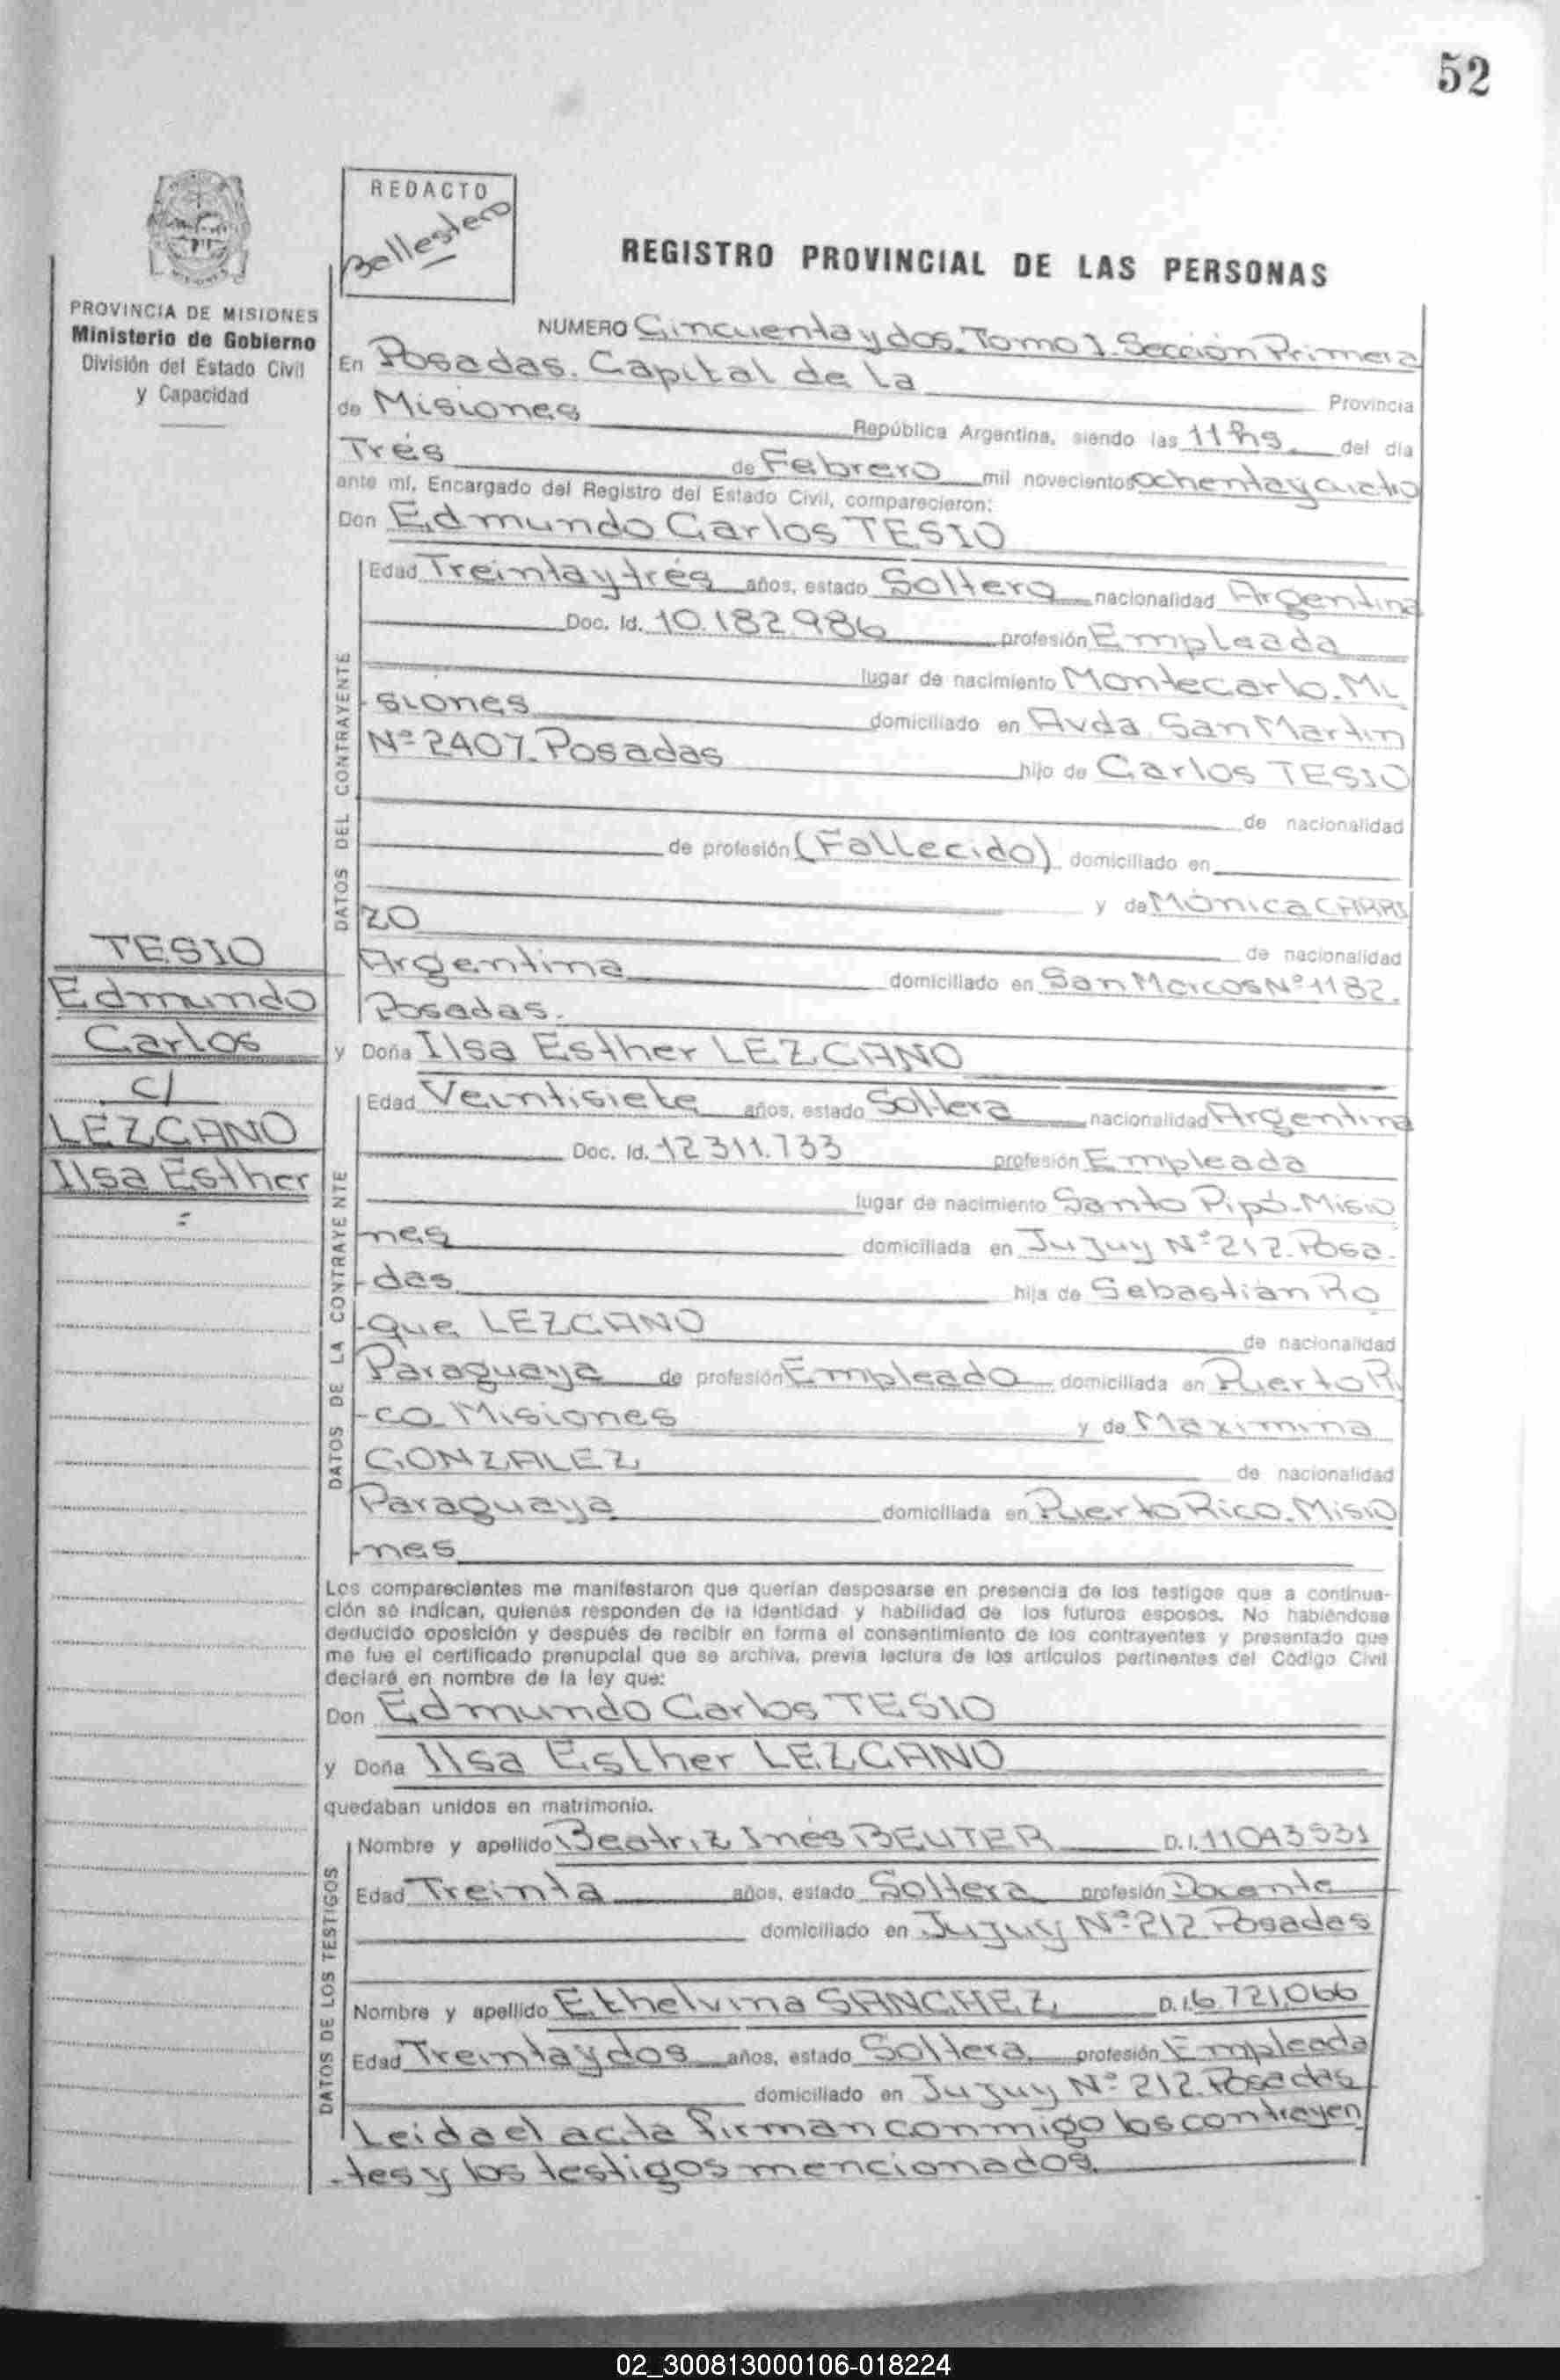 52
REDACTO
Ballestero
REGISTRO PROVINCIAL DE LAS PERSONAS
PROVINCIA DE MISIONES
Ministerio de Gobierno
División del Estado Civil
y Capacidad
NUMERO Cincuenta y dos. Tomo I. Sección Primera
En Posadas. Capital de la Provincia
de Misiones República Argentina, siendo las 11 hs del día
Trés de Febrero mil novecientos ochenta y cuatro
ante mí, Encargado del Registro del Estado Civil, comparecieron:
Don Edmundo Carlos TESIO
DATOS DEL CONTRAYENTE
Edad Treinta y trés años, estado Soltero nacionalidad Argentina
Doc. Id. 10.182.986 profesión Empleada
lugar de nacimiento Montecarlo. Mi
siones domiciliado en Avda San Martin
Nº 2407. Posadas hijo de Carlos TESIO
de nacionalidad
de profesión (Fallecido) domiciliado en
y de Mónica CARRI
ZO de nacionalidad
Argentina domiciliado en San Marcos Nº 1182.
Posadas.
TESIO
Edmundo
Carlos
c/
LEZCANO
Ilsa Esther
y Doña Ilsa Esther LEZCANO
DATOS DE LA CONTRAYENTE
Edad Veintisiete años, estado Soltera nacionalidad Argentina
Doc. Id. 12.311.733 profesión Empleada
lugar de nacimiento Santo Pipó-Misio
nes domiciliada en Jujuy Nº 212. Posa-
-das hija de Sebastián Ro
-que LEZCANO de nacionalidad
Paraguaya de profesión Empleado domiciliada en Puerto Ri
-co Misiones y de Maximina
GONZALEZ de nacionalidad
Paraguaya domiciliada en Puerto Rico. Misio
-nes
Los comparecientes me manifestaron que querían desposarse en presencia de los testigos que a continua-
ción se indican, quienes responden de la identidad y habilidad de los futuros esposos. No habiéndose
deducido oposición y después de recibir en forma el consentimiento de los contrayentes y presentado que
me fue el certificado prenupcial que se archiva, previa lectura de los artículos pertinentes del Código Civil
declaré en nombre de la ley que:
Don Edmundo Carlos TESIO
y Doña Ilsa Esther LEZCANO
quedaban unidos en matrimonio.
DATOS DE LOS TESTIGOS
Nombre y apellido Beatriz Inés BEUTER D.I. 11043531
Edad Treinta años, estado Soltera profesión Docente
domiciliado en Jujuy Nº 212 Posadas
Nombre y apellido Ethelvina SANCHEZ D.I. 6.721.066
Edad Treinta y dos años, estado Soltera profesión Empleada
domiciliado en Jujuy Nº 212. Posadas
Leida el acta firman conmigo los contrayen
-tes y los testigos mencionados
02_300813000106-018224